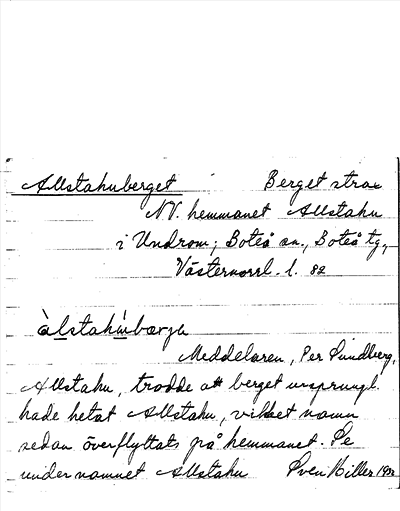 Allstahuberget Berget strax
NV. hemmanet Allstahu
i Undrom; Boteå sn., Boteå tg,
Västernorrl. l. 82
àlstahù̀bærja
Meddelaren, Per Sundberg,
Allstahu, trodde att berget ursprungl.
hade hetat Allstahu, vilket namn
sedan överflyttats på hemmanet. Se
under namnet Allstahu Sven Hiller 1932